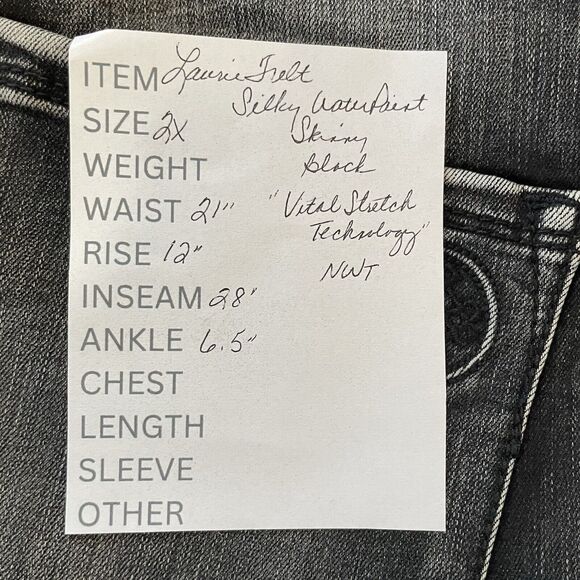 ITEM Laurie Felt
Silky Water Paint
SIZE 2X Skinny
WEIGHT black
WAIST 21" "Vital Stretch
Technology"
RISE 12"
NWT
INSEAM 28"
ANKLE 6.5"
CHEST
LENGTH
SLEEVE
OTHER